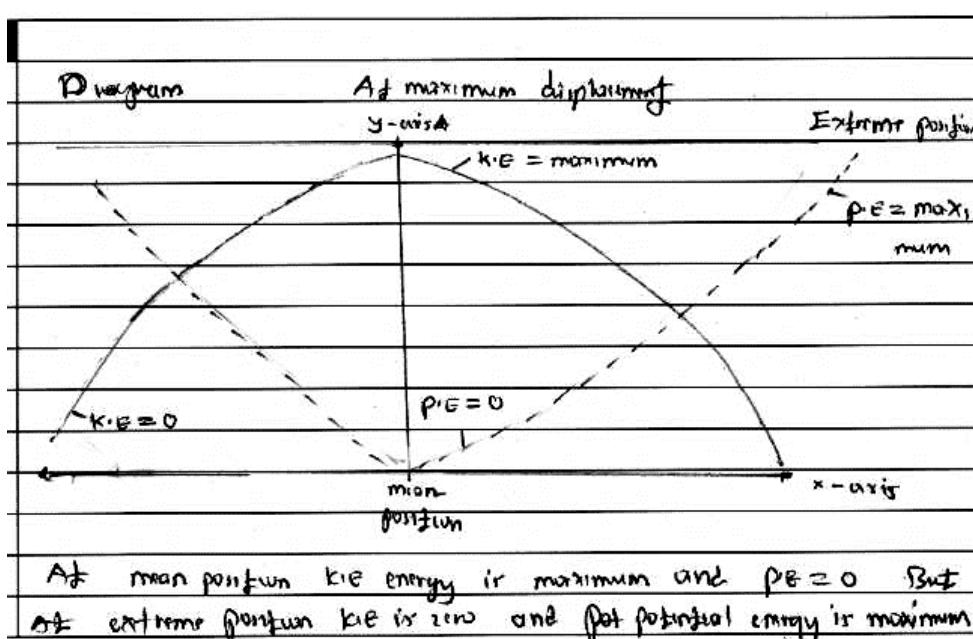 Diagram At maximum displacement
y-axis
Extreme position
K.E = maximum
P.E = maxi
mum
P.E = 0
K.E = 0
mean
position
x-axis
At mean position K.E energy is maximum and P.E = 0 But
At extreme position K.E is zero and pot potential energy is maximum